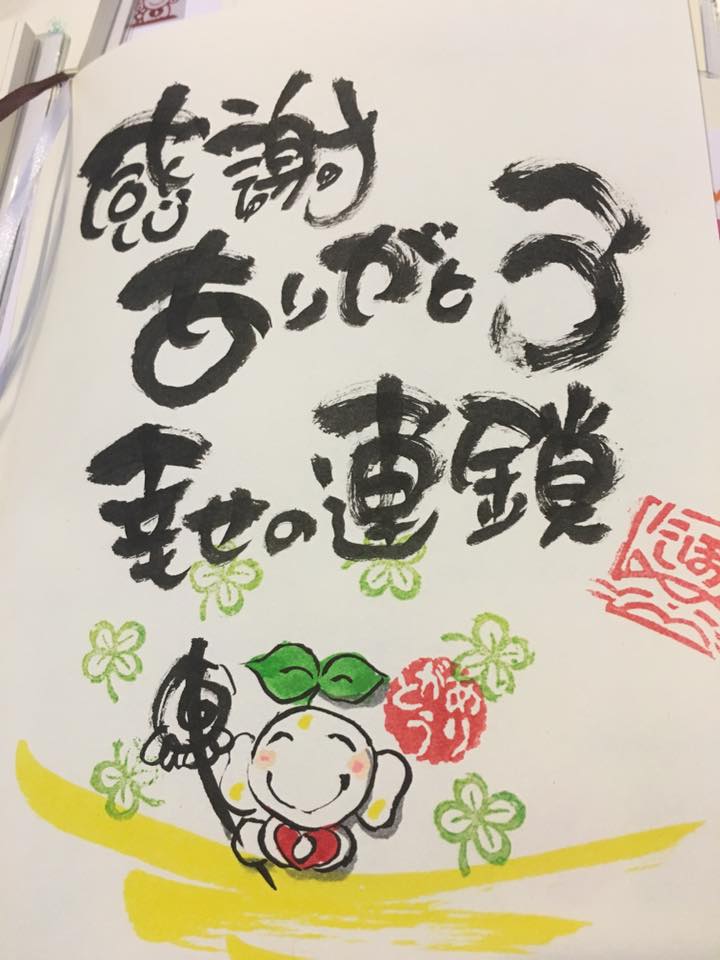 感謝
ありがとう
幸せの連鎖
ありがとう